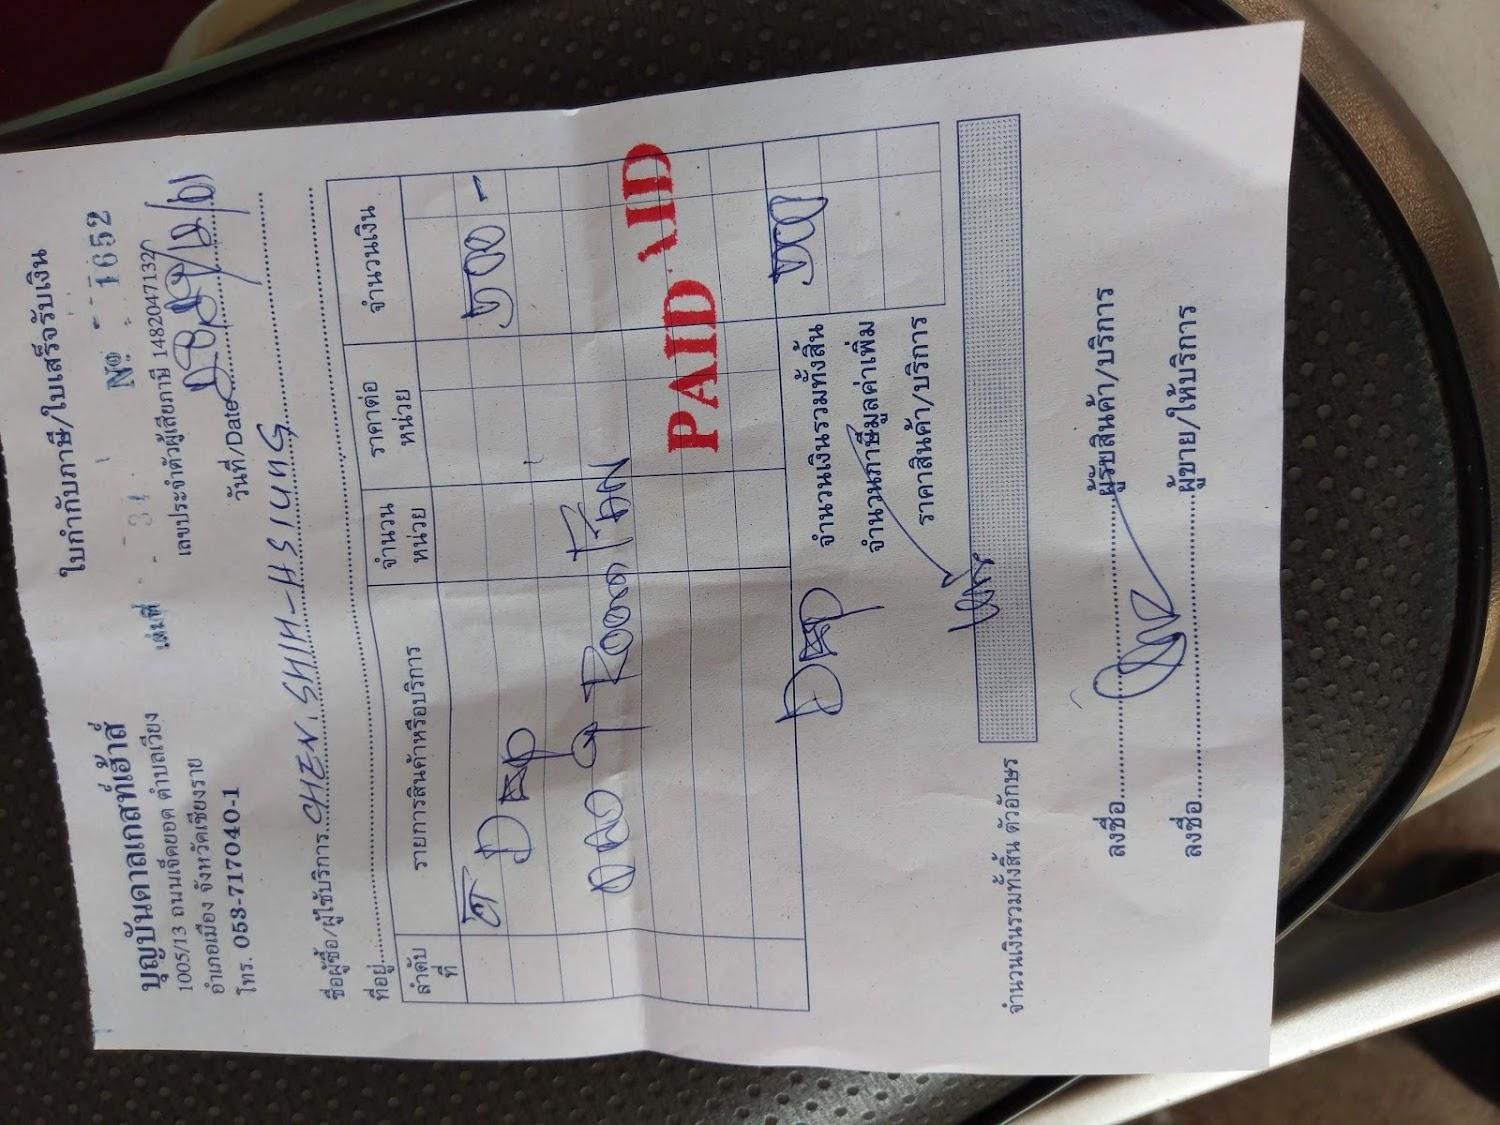 บุญบันดาลเกสท์เฮ้าส์
1005/13 ถนนเจ็ดยอด ตำบลเวียง
อำเภอเมือง จังหวัดเชียงราย
โทร. 053-717040-1
ใบกำกับภาษี/ใบเสร็จรับเงิน
เล่มที่ 31 Nº 1652
เลขประจำตัวผู้เสียภาษี 1482047132
วันที่/Date
ชื่อผู้ซื้อ/ผู้ใช้บริการ CHEN, SHIH-HSIUNG
ที่อยู่
ลำดับที่ รายการสินค้าหรือบริการ จำนวนหน่วย ราคาต่อหน่วย จำนวนเงิน
Room
PAID AID
จำนวนเงินรวมทั้งสิ้น
จำนวนภาษีมูลค่าเพิ่ม
ราคาสินค้า/บริการ
จำนวนเงินรวมทั้งสิ้น ตัวอักษร
ลงชื่อ ผู้รับสินค้า/บริการ
ลงชื่อ ผู้ขาย/ให้บริการ